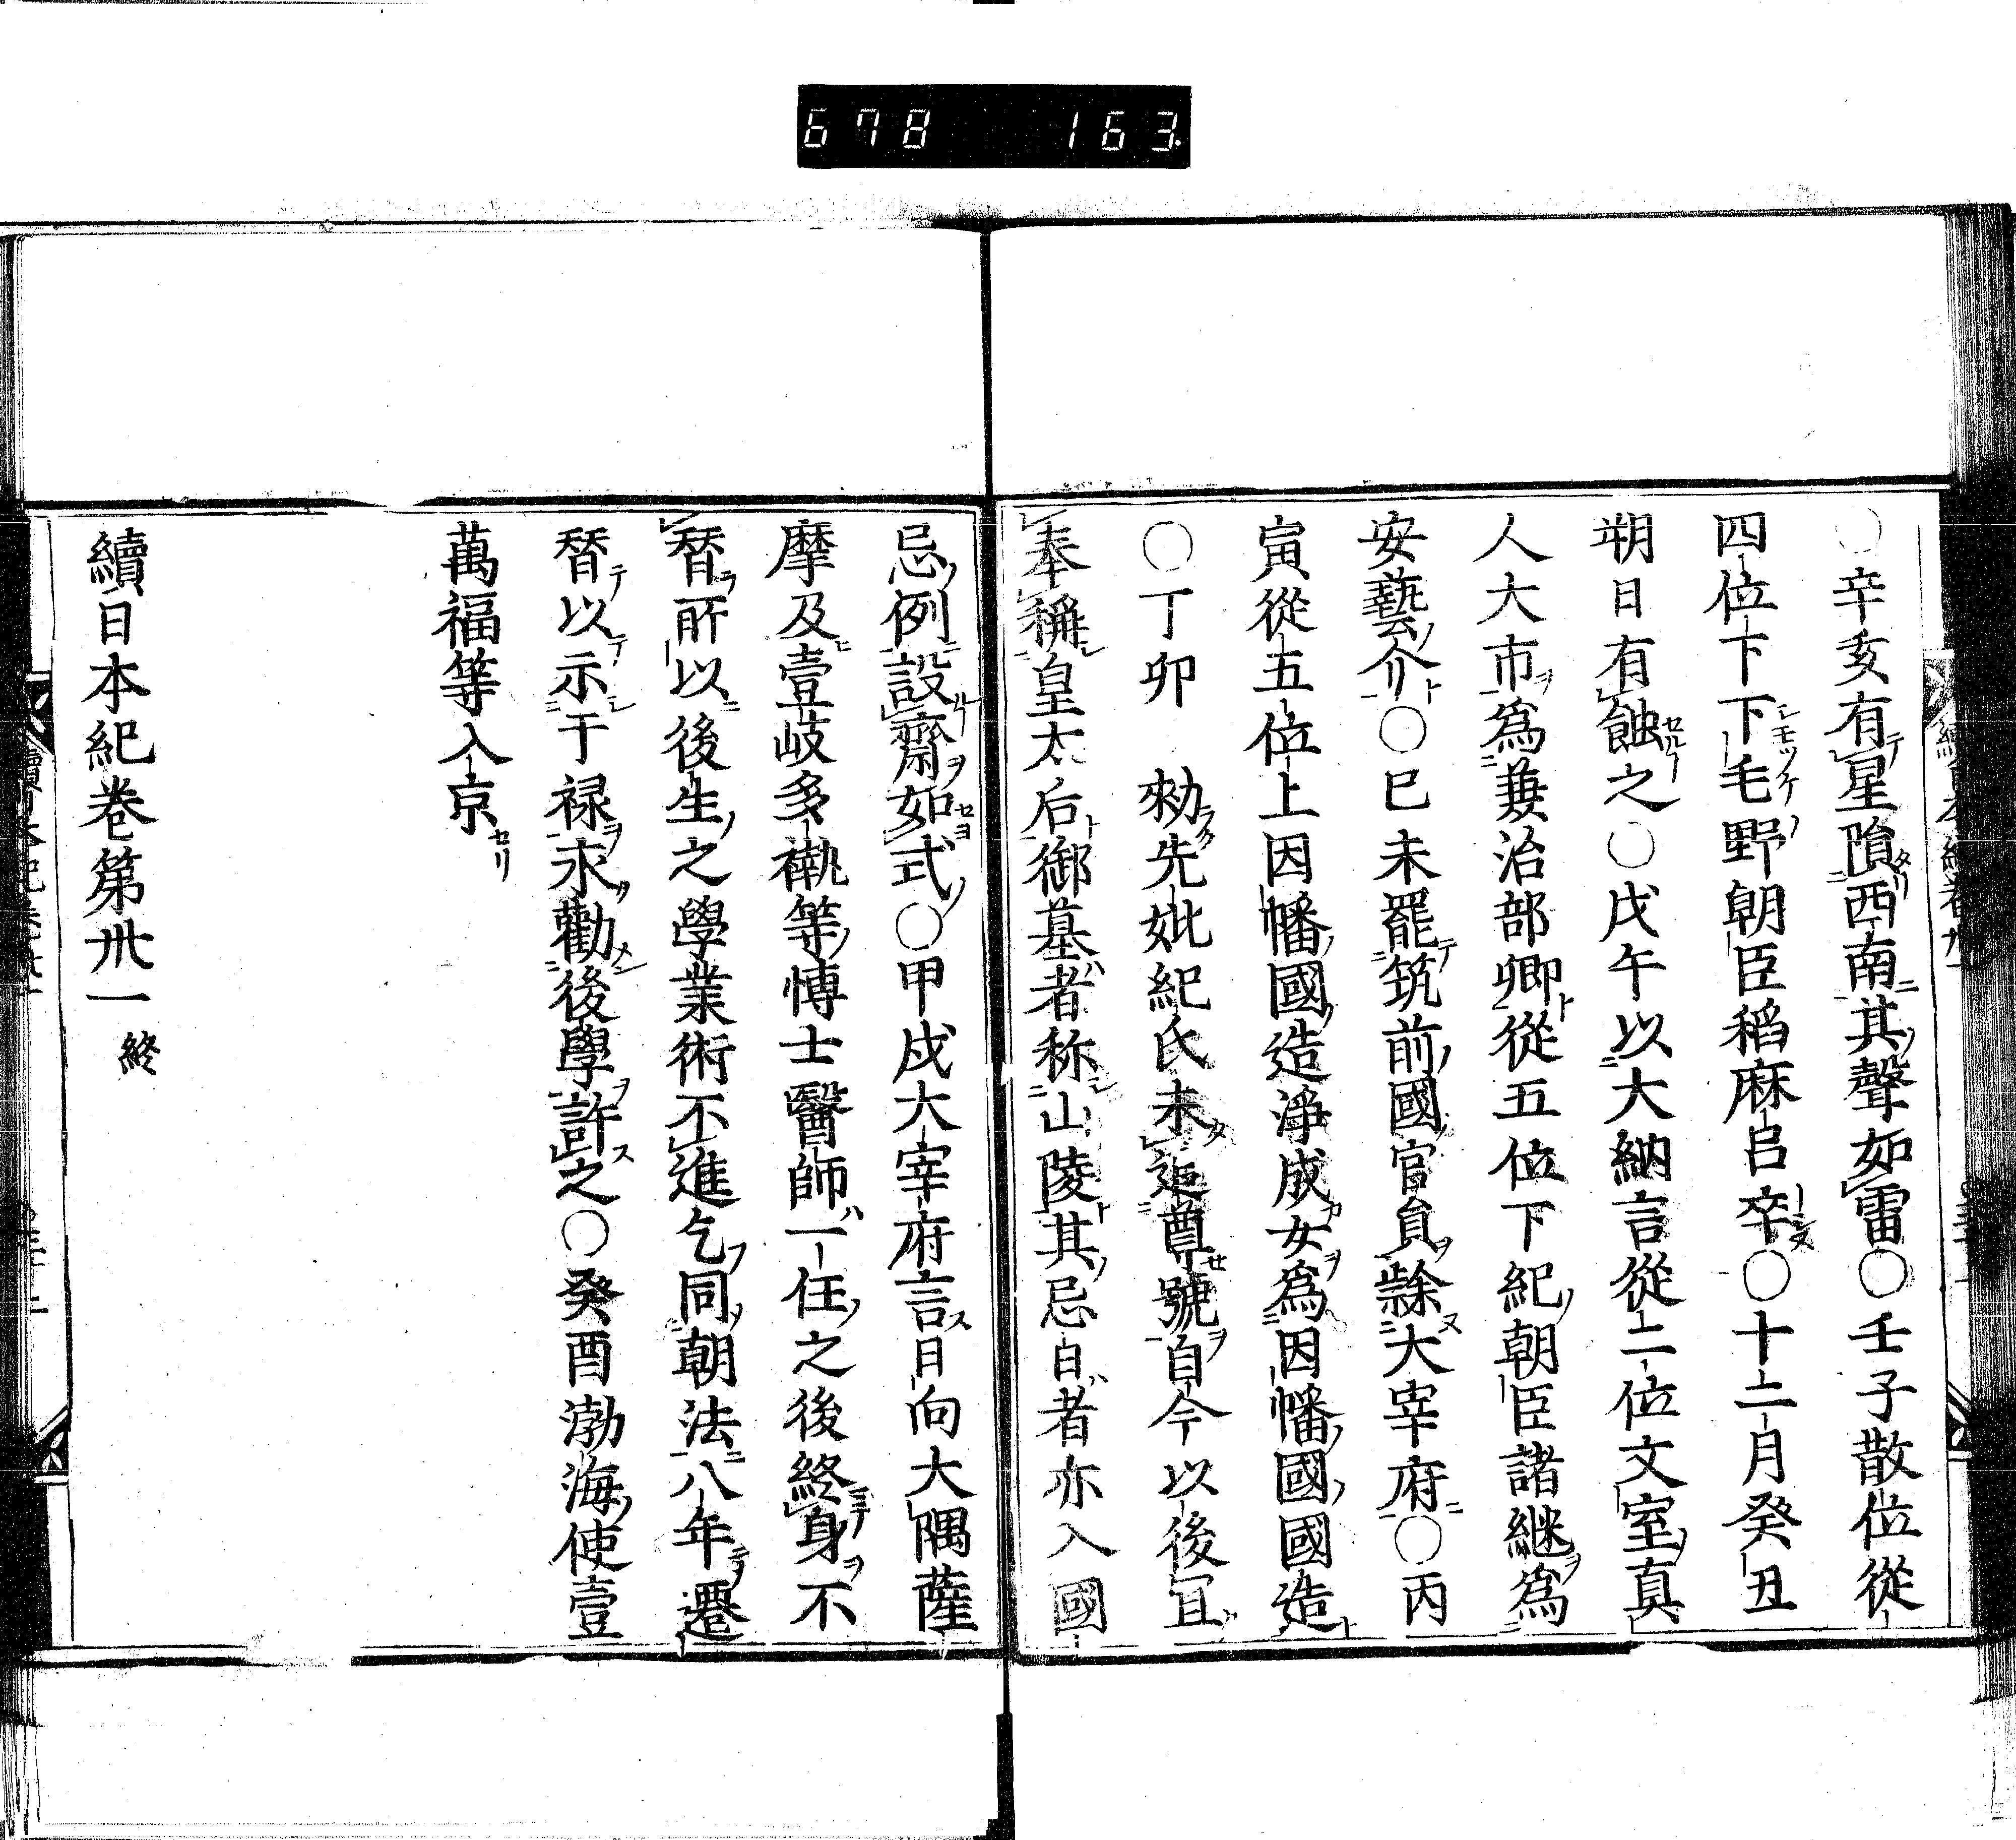 678 163
○辛亥有星隕西南其聲如雷○壬子散位從
四位下下毛野朝臣稻麻呂卒○十二月癸丑
朔日有蝕之○戊午以大納言從二位文室真
人大市爲兼治部卿從五位下紀朝臣諸継爲
安藝介○己未罷筑前國官員隷大宰府○丙
寅從五位上因幡國造淨成女爲因幡國國造
○丁卯 勑先妣紀氏未追尊號自今以後宜
奉稱皇太后御墓者称山陵其忌日者亦入國
忌例設齋如式○甲戌大宰府言日向大隅薩
摩及壹岐多褹等博士醫師一任之後終身不
替所以後生之學業術不進乞同朝法八年遷
替以示干禄永勸後學許之○癸酉渤海使壹
萬福等入京
續日本紀巻第卅一 終